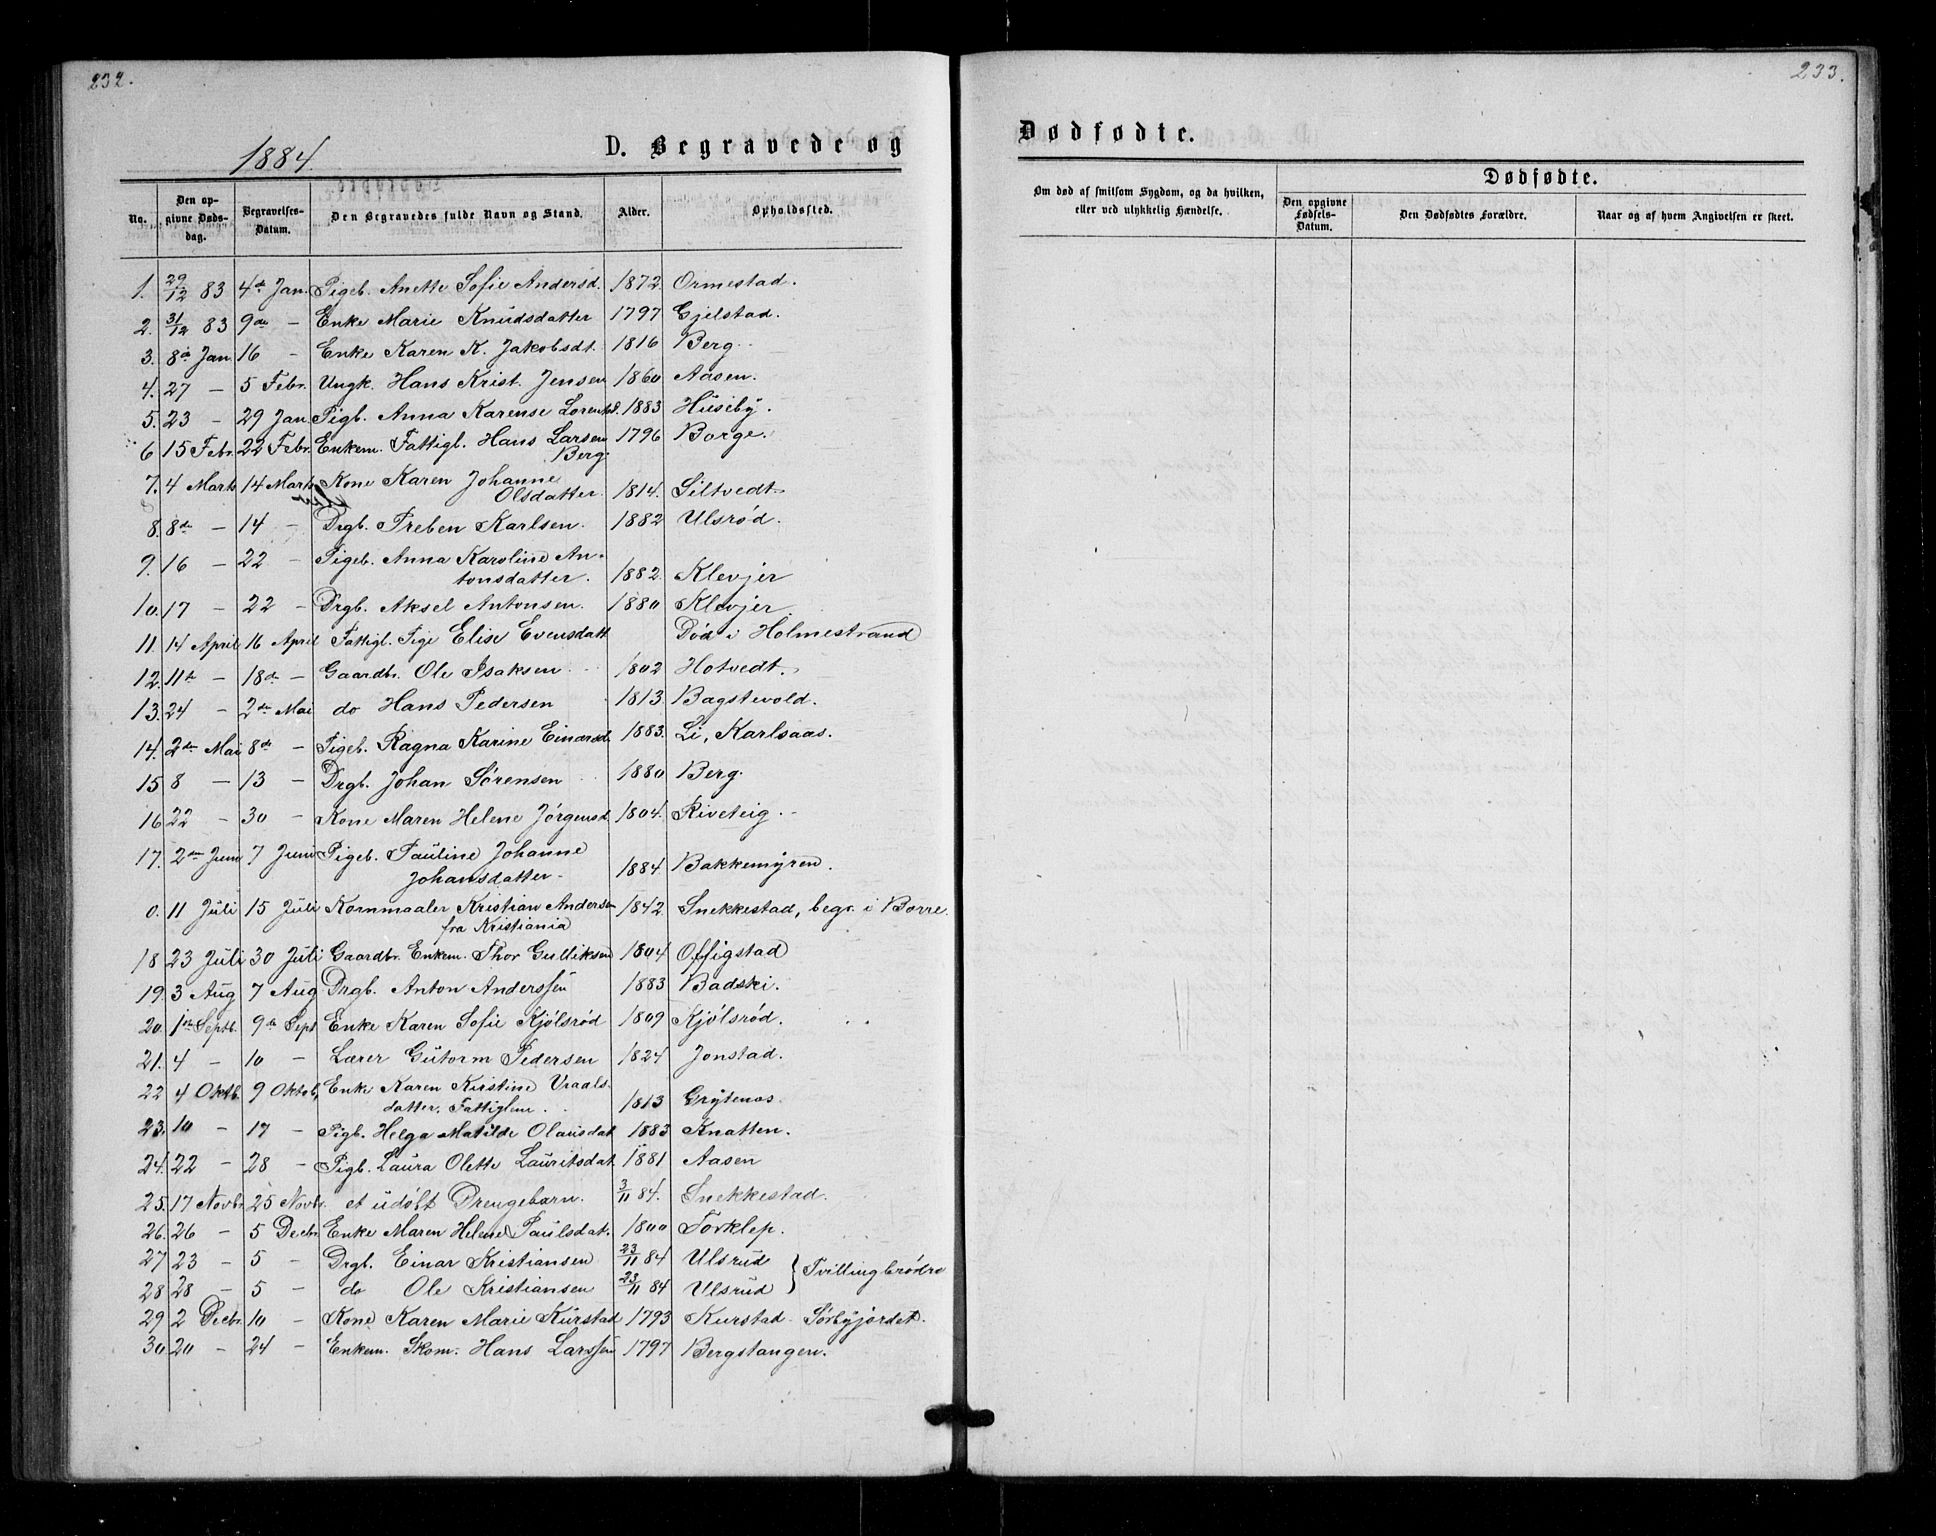 232.
1884.
D. Begravede og
No. Den opgivne Dødsdag. Begravelses-Datum. Den Begravedes fulde Navn og Stand. Alder. Opholdssted.
1. 29/12 83 4de Jan. Pigeb. Anette Sofie Andersd. 1872. Ormestad.
2. 31/12 83 9de — Enke Marie Knudsdatter 1797 Gjelstad.
3. 8de Jan 16 — Enke Karen K. Jakobsdt. 1816 Berg.
4. 27 — 5 Febr. Ungk. Hans Krist. Jensen 1860 Aasen.
5. 23 — 29 Jan. Pigb. Anna Karense Lorentsd. 1883 Huseby.
6 15 Febr. 22 Febr. Enkem. Fattigl. Hans Larsen 1796 Borge.
Berg.
7. 4 Marts 14 Marts Kone Karen Johanne
Olsdatter 1814. Siltvedt
8. 8de — 14 — Drgb. Preben Karlsen. 1882 Ulsrød.
9. 16 — 22 — Pigeb. Anna Karoline An-
tonsdatter. 1882. Klevjer
10. 17 — 22 — Drgb. Aksel Antonsen. 1880 Klevjer
11. 14 April 16 April Fattigl. Pige Elise Evensdatt Død i Holmestrand
12. 11te — 18de — Gaardbr. Ole Isaksen 1802 Hotvedt.
13. 24 — 2den Mai do Hans Pedersen 1813. Bagstevold.
14. 2den Mai 8de — Pigeb. Ragna Karine Einarsd. 1883. Li, Karlsaas.
15 8 — 13 — Drgb. Johan Sørensen 1880 Berg.
16 22 — 30 — Kone Maren Helene Jørgensd. 1804. Riveteig.
17. 2den Juni 7 Juni Pigeb. Pauline Johanne
Johansdatter 1884. Bakkemyren.
0. 11 Juli 15 Juli Kornmaaler Kristian Andersen 1842. Snekkestad, begr. i Borre.
fra Kristiania
18 23 Juli 30 Juli Gaardbr. Enkem. Thor Gulliksen 1804 Offigstad
19. 3 Aug 7 Aug Drgb. Anton Anderssen 1883 Badski.
20. 1ste Septb. 9de Sept Enke Karen Sofie Kjølsrød 1809 Kjølsrød.
21. 4 — 10 — Lærer Gutorm Pedersen 1824 Jonstad.
22 4 Oktb. 9 Oktob. Enke Karen Kirstine Vraals-
datter. Fattiglem. 1813 Grytenæs.
23. 10 — 17 — Pigb. Helga Matilde Olausdat 1883 Knatten.
24. 22 — 28 — Pigb. Laura Olette Lauritsdat. 1881 Aasen
25. 17 Novbr. 25 Novbr. et udøbt Drengebarn. 3/11 84. Snekkestad.
26. 26 — 5 Decbr. Enke Maren Helene Paulsdat. 1800 Torklep.
27 23 — 5 — Drgb. Einar Kristiansen 23/11 84 Ulsrud } Tvillingbrødre
28 28 — 5 — do Ole Kristiansen 23/11 84 Ulsrud
29 2 Decbr. 10 — Kone Karen Marie Kurstad 1793 Kurstad - Sørbyjordet.
30 20 — 24 — Enkem. Skom. Hans Larssen 1797 Bergstangen.
233.
Dødfødte.
Om død af smitsom Sygdom, og da hvilken, eller ved ulykkelig Hændelse.
Dødfødte.
Den opgivne Fødsels-Datum. Den Dødfødtes Forældre. Naar og af hvem Angivelsen er skeet.